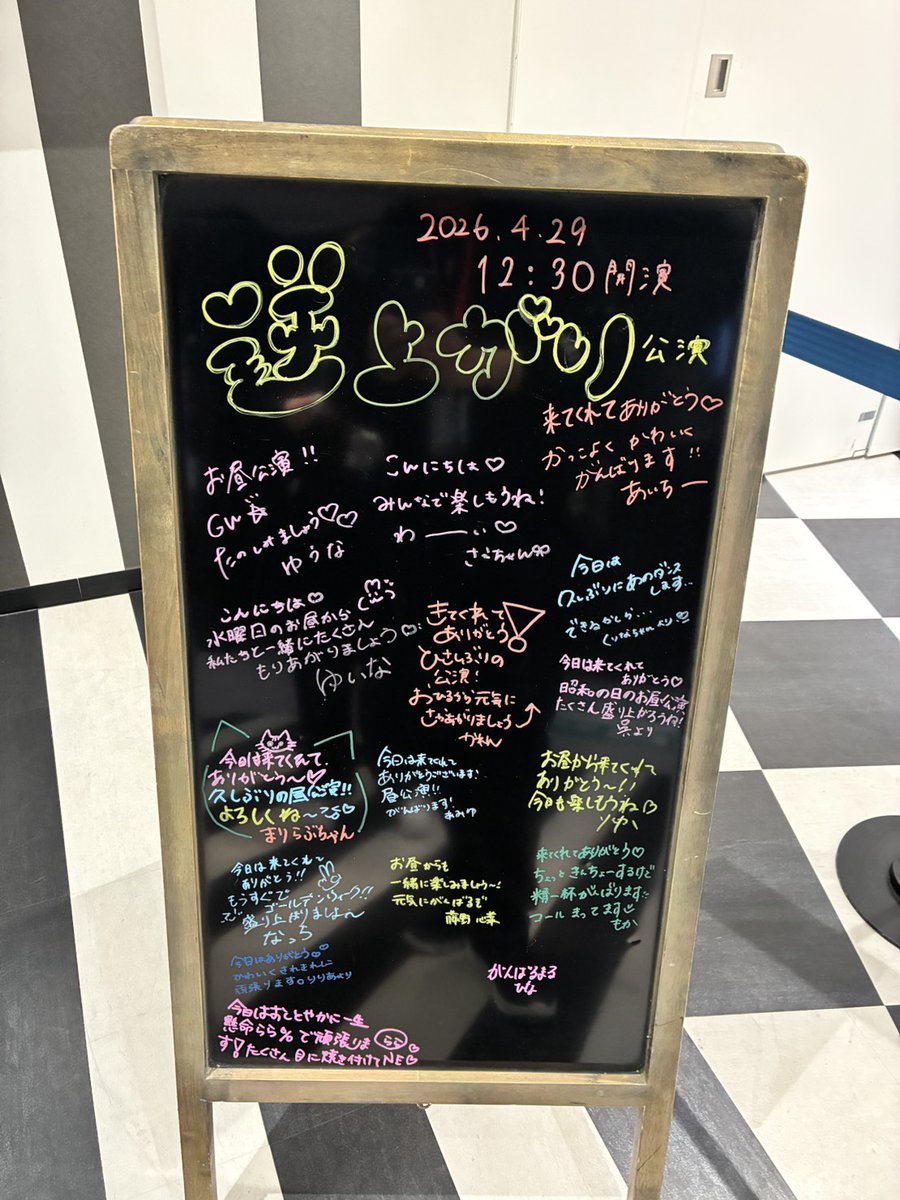 2026.4.29
12:30開演
逆上がり公演
来てくれてありがとう♡
かっこよく かわいく
がんばります!!
あいちー
お昼公演!!
GW長
たのしみましょう♡♡
ゆうな
こんにちは♡
みんなで楽しもうね!
わーーい♡
今日は
久しぶりにあのダンス
します…
できるかしが…
こんにちは♡
水曜日のお昼から
私たちと一緒にたくさん
もりあがりましょう♡
ゆいな
きてくれて
ありがとう
ひさしぶりの
公演!
おひるから元気に
さかあがりましょう
かれん
今日は来てくれて
ありがとう♡
昭和の日のお昼公演
たくさん盛り上がろうね!
呉より
今日は来てくれて
ありがとう〜♡
久しぶりの昼公演!!
よろしくね〜
まりらぶちゃん
今日は来てくれて
ありがとうございます!
昼公演!!
がんばります!
あみゆ
お昼から来てくれて
ありがとう〜!!
今日も楽しもうね♡
りか
今日は来てくれて
ありがとう!!
もうすぐで
ゴールデンウィーク!!
で 盛り上がりましょ〜
なっち
お昼からも
一緒に楽しみましょう〜!
元気にがんばるぞ
藤野 心菜
来てくれてありがとう♡
ちょっときんちょーするけど
精一杯がんばります
コールまってます
もか
今日はありがとう♡
かわいくきれきれに
頑張ります。りりあより
がんばるまる
ぴよ
今日はおしとやかに一生
懸命らら%で頑張りま
す!たくさん目に焼き付けてNE♡
らら